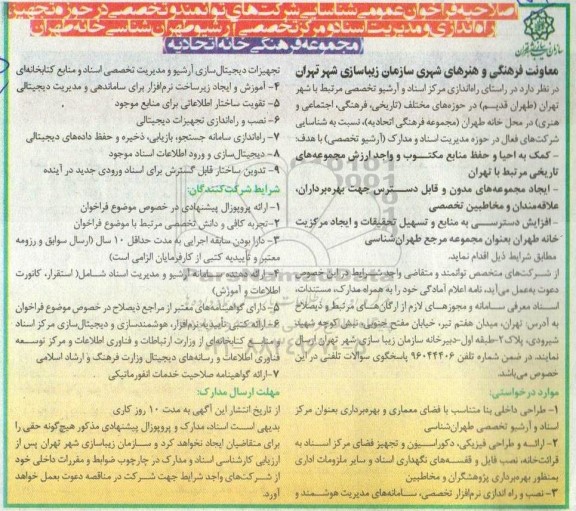 اصلاحیه فراخوان عمومی شناسایی شرکت های توانمند و تخصصی در حوزه تجهیز،
راه اندازی و مدیریت اسناد و مرکز تخصصی آرشیو طهران شناسی خانه طهران
(مجموعه فرهنگی خانه اتحادیه)
معاونت فرهنگی و هنرهای شهری سازمان زیباسازی شهر تهران
در نظر دارد در راستای راه‌اندازی مرکز اسناد و آرشیو تخصصی مرتبط با شهر
تهران (طهران قدیم) در حوزه‌های مختلف (تاریخی، فرهنگی، اجتماعی و
هنری) در محل خانه طهران (مجموعه فرهنگی اتحادیه)، نسبت به شناسایی
شرکت‌های فعال در حوزه مدیریت اسناد و مدارک (آرشیو تخصصی) با هدف:
- کمک به احیا و حفظ منابع مکتوب و واجد ارزش مجموعه‌های
تاریخی مرتبط با تهران
- ایجاد مجموعه‌های مدون و قابل دسترس جهت بهره‌برداران،
علاقه‌مندان و مخاطبین تخصصی
- افزایش دسترسی به منابع و تسهیل تحقیقات و ایجاد مرکزیت
خانه طهران بعنوان مجموعه مرجع طهران‌شناسی
مطابق شرایط ذیل اقدام نماید.
از شرکت‌های متخصص توانمند و متقاضی واجد شرایط در این خصوص
دعوت به‌عمل می‌آید، نامه اعلام آمادگی خود را به همراه مدارک، مستندات،
اسناد معرفی سامانه و مجوزهای لازم از ارگان‌های مرتبط و ذیصلاح
به آدرس: تهران، میدان هفتم تیر، خیابان مفتح جنوبی، نبش کوچه شهید
شیرودی، پلاک ۲-طبقه اول-دبیرخانه سازمان زیبا سازی شهر تهران ارسال
نمایند. در ضمن شماره تلفن ۹۶۰۴۴۴۰۶ پاسخگوی سوالات تلفنی در این
خصوص می‌باشد.
موارد درخواستی:
۱- طراحی داخلی بنا متناسب با فضای معماری و بهره‌برداری بعنوان مرکز
اسناد و آرشیو تخصصی طهران‌شناسی
۲- ارائه و طراحی فیزیکی، دکوراسیون و تجهیز فضای مرکز اسناد به
قرائت‌خانه، نصب فایل و قفسه‌های نگهداری اسناد و سایر ملزومات اداری
بمنظور بهره‌برداری پژوهشگران و مخاطبین
۳- نصب و راه اندازی نرم‌افزار تخصصی، سامانه‌های مدیریت هوشمند و
تجهیزات دیجیتال‌سازی آرشیو و مدیریت تخصصی اسناد و منابع کتابخانه‌ای
۴- آموزش و ایجاد زیرساخت نرم‌افزار برای ساماندهی و مدیریت دیجیتالی
۵- تقویت ساختار اطلاعاتی برای منابع موجود
۶- نصب و راه‌اندازی تجهیزات دیجیتالی
۷- راه‌اندازی سامانه جستجو، بازیابی، ذخیره و حفظ داده‌های دیجیتالی
۸- دیجیتال‌سازی و ورود اطلاعات اسناد موجود
۹- تدوین ساختار قابل گسترش برای اسناد ورودی جدید در آینده
شرایط شرکت‌کنندگان:
۱- ارائه پروپوزال پیشنهادی در خصوص موضوع فراخوان
۲- تجربه کافی و دانش تخصصی مرتبط با موضوع فراخوان
۳- دارا بودن سابقه اجرایی به مدت حداقل ۱۰ سال (ارسال سوابق و رزومه
معتبر و تأییدیه کتبی از کارفرمایان الزامی است)
سامانه آرشیو و مدیریت اسناد شامل( استقرار، کانورت
اطلاعات و آموزش)
۵- دارای گواهینامه‌های معتبر از مراجع ذیصلاح در خصوص موضوع فراخوان
۶- ارائه کتبی تأییدیه نرم‌افزار، هوشمندسازی و دیجیتال‌سازی مرکز اسناد
و منابع کتابخانه‌ای از وزارت ارتباطات و فناوری اطلاعات و مرکز توسعه
فناوری اطلاعات و رسانه‌های دیجیتال وزارت فرهنگ و ارشاد اسلامی
۷-ارائه گواهینامه صلاحیت خدمات انفورماتیکی
مهلت ارسال مدارک:
از تاریخ انتشار این آگهی به مدت ۱۰ روز کاری
بدیهی است اسناد، مدارک و پروپوزال پیشنهادی مذکور هیچ‌گونه حقی را
برای متقاضیان ایجاد نخواهد کرد و سازمان زیباسازی شهر تهران پس از
ارزیابی کارشناسی اسناد و مدارک در چارچوب ضوابط و مقررات داخلی خود
از شرکت‌های واجد شرایط جهت شرکت در مناقصه دعوت بعمل خواهد
آورد.